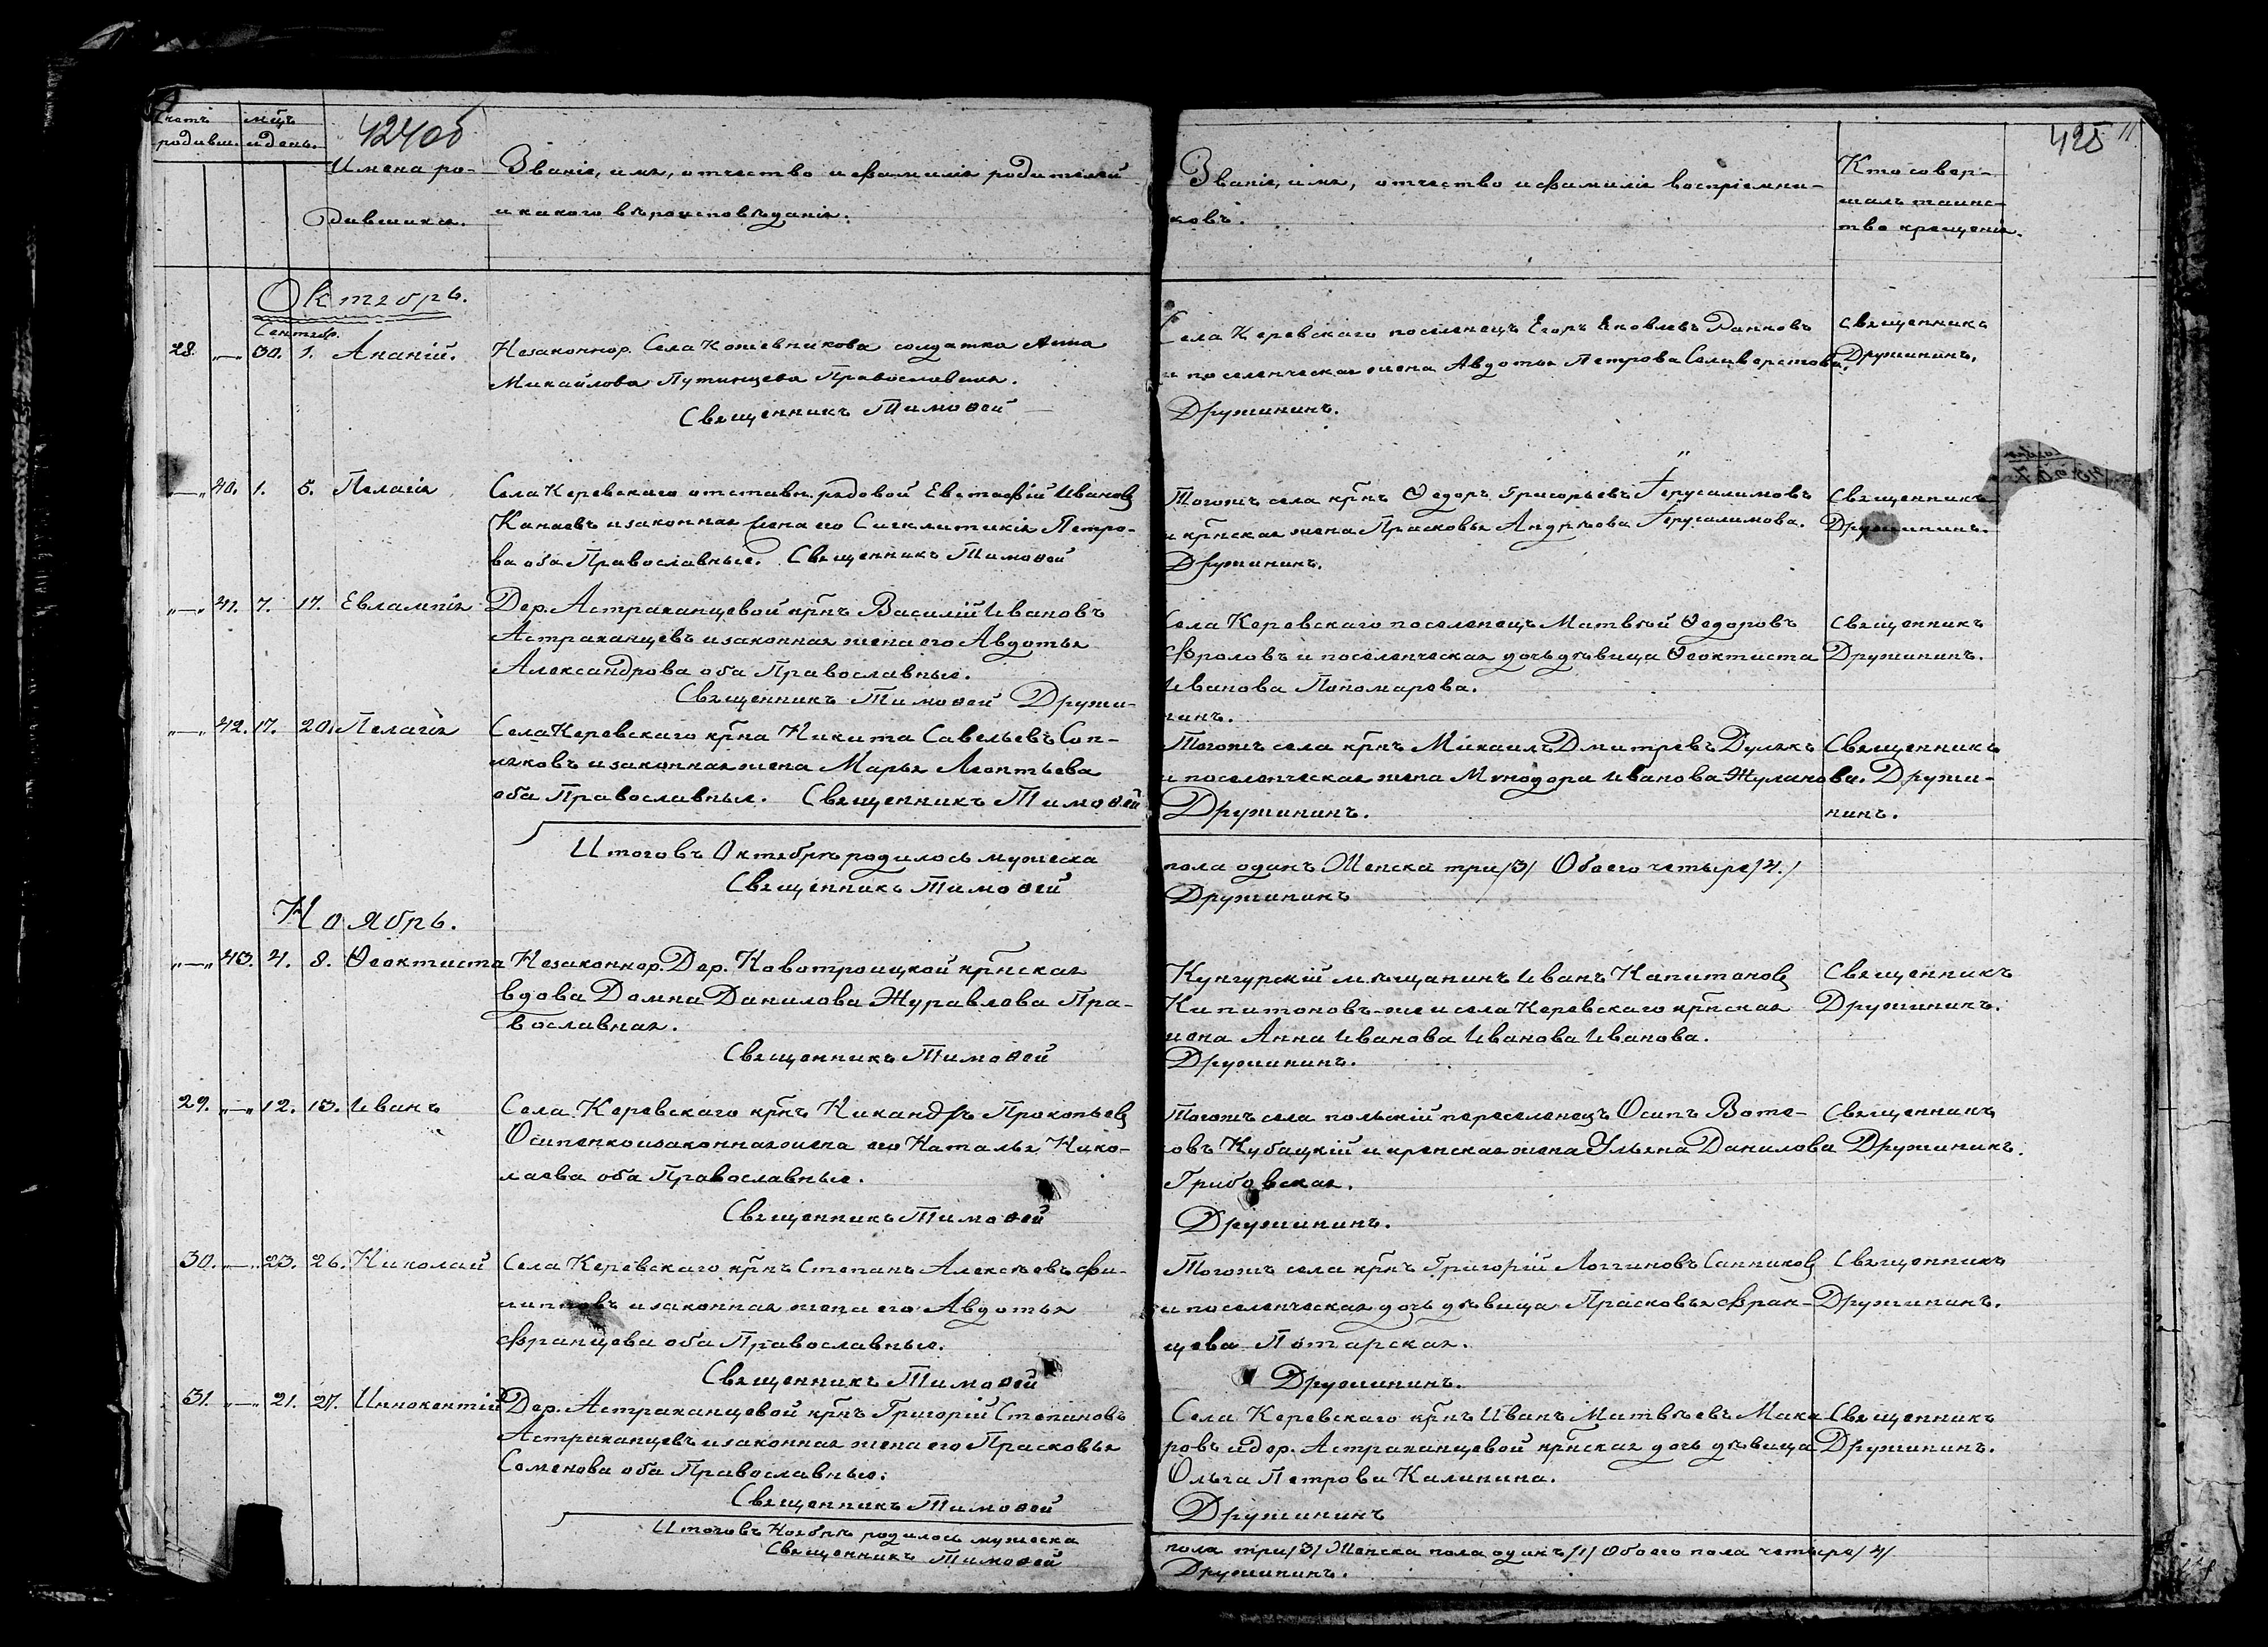 Счетъ родивш.
мѣцъ и день.
424об
Имена ро-
дившихся.
Званіе, имя, отчество и фамилія родителей
и какого вѣроисповѣданія.
Званіе, имя, отчество и фамилія воспріемни-
ковъ.
Кто совер-
шалъ таинс-
тво крещенія.
425
11
Октябрь.
Сентябр.
28. „—„ 30. 1. Ананій.
Незаконнор. Села Кожевникова солдатка Анна
Михайлова Путинцева Православная.
Священникъ Тимоѳей
Села Керевскаго поселенецъ Егоръ Яковлевъ
и поселенческая жена Авдотья Петрова Селиверстова.
Дружининъ.
Священникъ
Дружининъ.
„—„ 40. 1. 5. Пелагія
Села Керевскаго отставн. рядовой Евстафій Ивановъ
Канаевъ и законная жена его Сигклитикія Петро-
ва оба Православные. Священникъ Тимоѳей
Тогожъ села крнъ Ѳедоръ Григорьевъ Іерусалимовъ
и крнская жена Прасковья Андрѣева Іерусалимова.
Дружининъ.
Священникъ
Дружининъ.
„—„ 41. 7. 17. Евлампія
Дер. Астраханцевой крнъ Василій Ивановъ
Астраханцевъ и законная жена его Авдотья
Александрова оба Православные.
Священникъ Тимоѳей Дружи-
Села Керевскаго поселенецъ Матвѣй Ѳедоровъ
Фроловъ и поселенческая дочь дѣвица Ѳеоктиста
Иванова Пономарева.
нинъ.
Священникъ
Дружининъ.
„—„ 42. 17. 20. Пелагія
Села Керевскаго крнъ Никита Савельевъ Соп-
ляковъ и законная жена Марья Леонтьева
оба Православные. Священникъ Тимоѳей
Тогожъ села крнъ Михаилъ Дмитревъ Дулякъ
и поселенческая жена Минодора Иванова Жуланова.
Дружининъ.
Священникъ
Дружи-
нинъ.
Итого въ Октябрѣ родилось мужеска
пола одинъ Женска три /3/ Обоего четыре /4./
Священникъ Тимоѳей
Дружининъ
Ноябрь.
„—„ 43. 4. 8. Ѳеоктиста
Незаконнор. Дер. Новотроицкой крнская
вдова Домна Данилова Журавлова Пра-
вославная.
Священникъ Тимоѳей
Кунгурскій мѣщанинъ Иванъ Капитоновъ
Капитоновъ-же и села Керевскаго крнская
жена Анна Иванова Иванова Иванова.
Дружининъ.
Священникъ
Дружининъ.
29. „—„ 12. 13. Иванъ
Села Керевскаго крнъ Никандръ Прокопьевъ
Осипенко и законная жена его Наталья Нико-
лаева оба Православные.
Священникъ Тимоѳей
Тогожъ села польскій переселенецъ Осипъ Воте-
ковъ Кубацкій и кренская жена Ульяна Данилова
Грибовская.
Дружининъ.
Священникъ
Дружининъ.
30. „—„ 23. 26. Николай
Села Керевскаго крнъ Степанъ Алексѣевъ Фи-
липповъ и законная жена его Авдотья
Францева оба Православные.
Священникъ Тимоѳей
Тогожъ села крнъ Григорій Логгиновъ Санниковъ
и поселенческая дочь дѣвица Прасковья Фран-
цева Потарская.
Дружининъ.
Священникъ
Дружининъ.
31. „—„ 21. 27. Иннокентій
Дер. Астраханцевой крнъ Григорій Степановъ
Астраханцевъ и законная жена его Прасковья
Семенова оба Православные.
Священникъ Тимоѳей
Села Керевскаго крнъ Иванъ Матвѣевъ Мака
ровъ и дер. Астраханцевой крнская дочь дѣвица
Ольга Петрова Калинина.
Дружининъ
Священникъ
Дружининъ.
Итого въ Ноябрѣ родилось мужеска
пола три /3/ Женска пола одинъ /1/ Обоего пола четыре /4/
Священникъ Тимоѳей
Дружининъ.